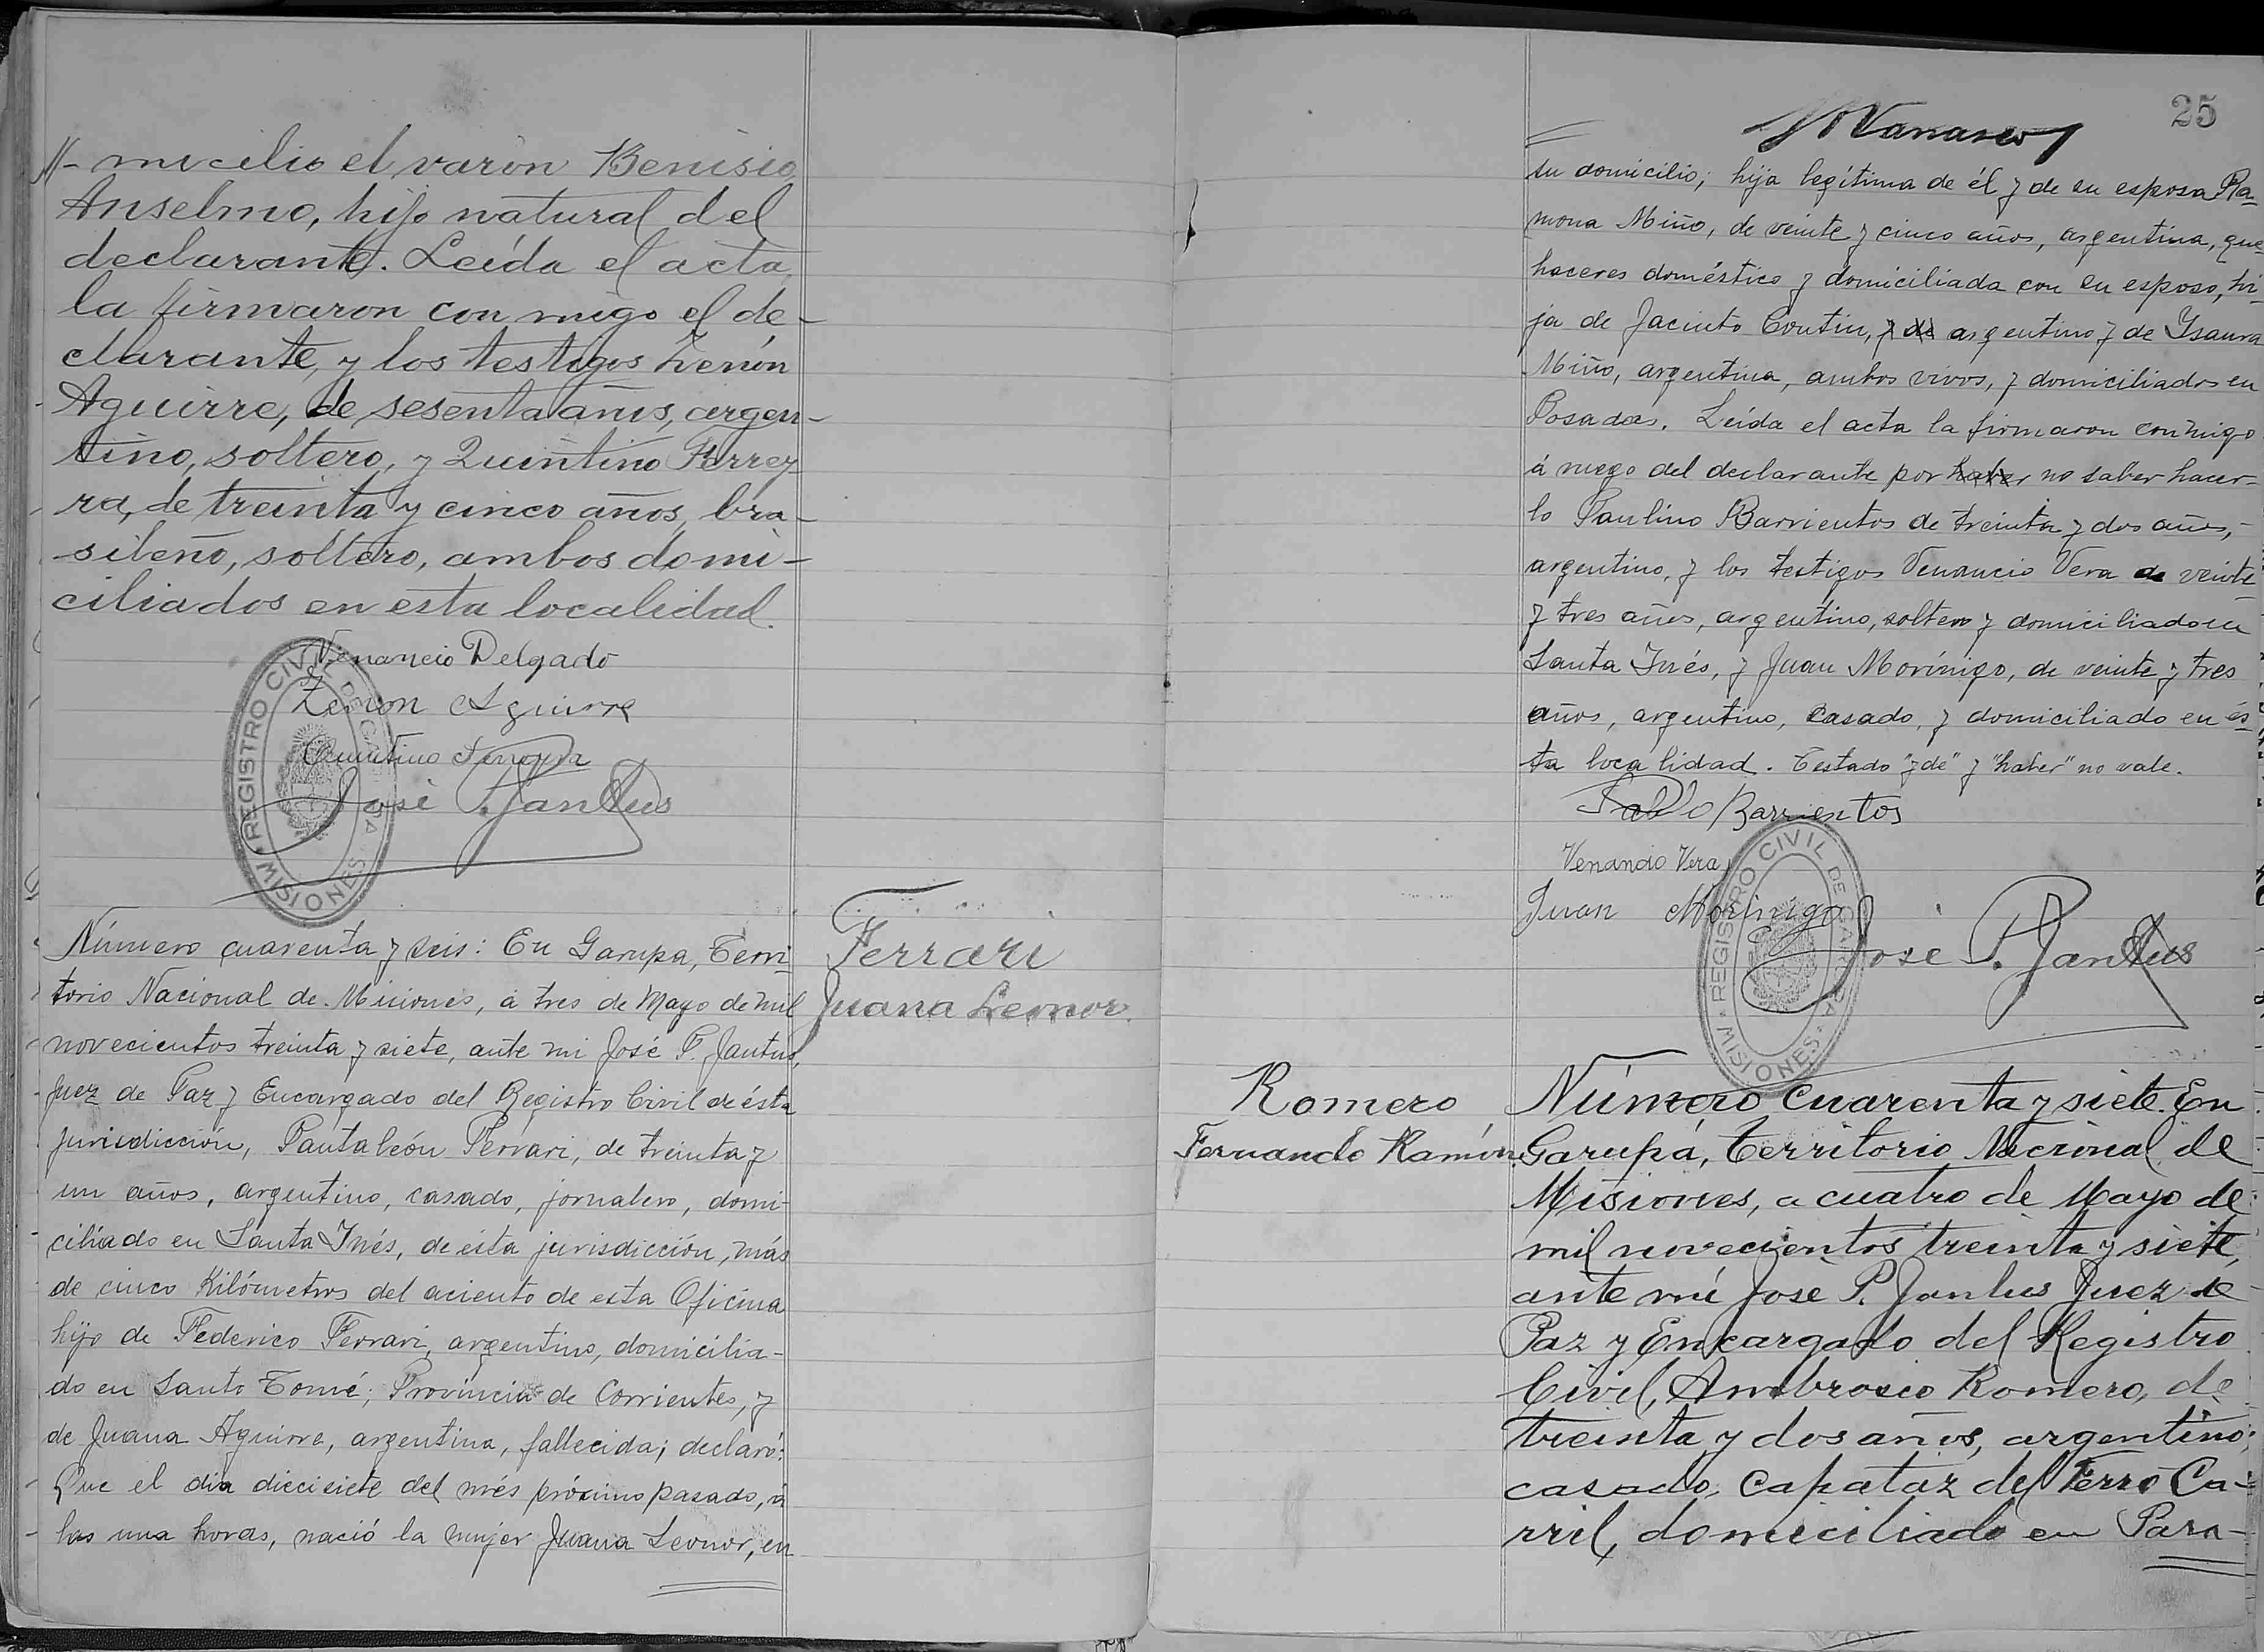 micilio el varón Benisio
Anselmo, hijo natural del
declarante. Leída el acta
la firmaron con migo el de-
clarante, y los testigos Zenón
Aguirre, de sesenta años, argen-
tino, soltero, y Quintino Ferrey
ra, de treinta y cinco años, bra-
sileño, soltero, ambos domi-
ciliados en esta localidad.
Venancio Delgado
Zenon Aguirre
Quintino Ferreyra
José P. Jantus
REGISTRO CIVIL DE GARUPA
MISIONES
Número cuarenta y seis: En Garupa, Terri-
torio Nacional de Misiones, á tres de Mayo de mil
novecientos treinta y siete, ante mi José P. Jantus,
Juez de Paz y Encargado del Registro Civil de ésta
jurisdicción, Pantaleón Ferrari, de treinta y
un años, argentino, casado, jornalero, domi-
ciliado en Santa Inés, de esta jurisdicción, más
de cinco Kilómetros del aciento de esta Oficina
hijo de Federico Ferrari, argentino, domicilia-
do en Santo Tomé, Provincia de Corrientes, y
de Juana Aguirre, argentina, fallecida; declaró:
Que el dia diecisiete del més próximo pasado, á
las una horas, nació la mujer Juana Leonor, en
Ferrari
Juana Leonor.
25
su domicilio; hija legítima de él y de su esposa Ra-
mona Miño, de veinte y cinco años, argentina, que
haceres doméstico y domiciliada con su esposo, hi-
ja de Jacinto Contin, y de argentino y de Isaura
Miño, argentina, ambos vivos, y domiciliados en
Posadas. Leída el acta la firmaron conmigo
á ruego del declarante por haber no saber hacer-
lo Paulino Barrientos de treinta y dos años,-
argentino, y los testigos Venancio Vera de veinte
y tres años, argentino, soltero y domiciliado en
Santa Inés, y Juan Morínigo, de veinte y tres
años, argentino, casado, y domiciliado en és-
ta localidad. Testado "y de" y "haber" no vale.
Pablo Barrientos
Venancio Vera
Juan Morinigo
José P. Jantus
REGISTRO CIVIL DE GARUPA
MISIONES
Romero
Fernando Ramón.
Número cuarenta y siete. En
Garupá, Territorio Nacional de
Misiones, a cuatro de Mayo de
mil novecientos treinta y siete,
ante mí José P. Jantus Juez de
Paz y Encargado del Registro
Civil, Ambrosio Romero, de
treinta y dos años, argentino,
casado, Capataz del Ferro Ca-
rril, domiciliado en Para-